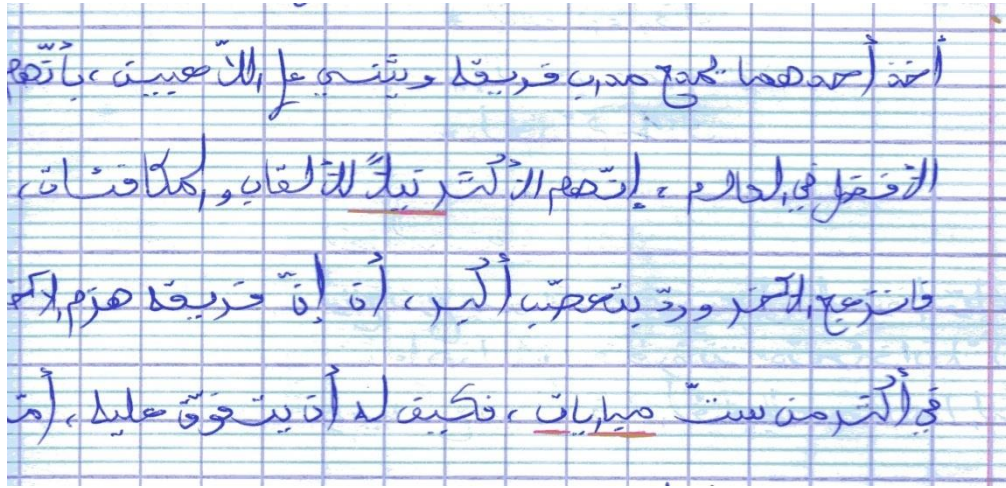 أخذ أحدهما يمدح مدرب فريقه ويثني على اللاّعبين، بأنّهم
الأفضل في العالم، إنّهم الأكثر نيلاً للألقاب والمكافئات،
فانزعج الآخر وردّ بتعصّب أكبر، أن إنّ فريقه هزم الآخر
في أكثر من ستّ مباريات، فكيف له أن يتفوّق عليه،